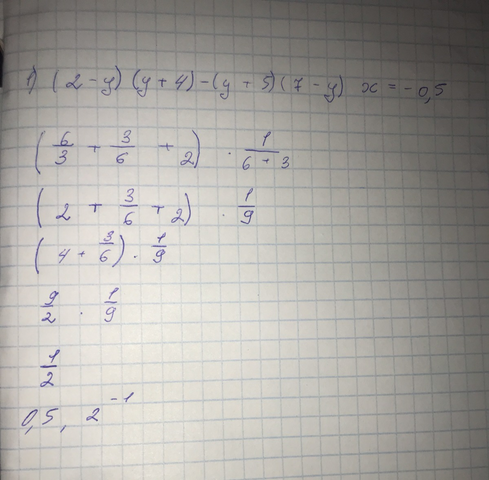 1) (2 - y) (y + 4) - (y + 5) (7 - y) x = - 0,5
(6/3 + 3/6 + 2) · 1/(6 + 3)
(2 + 3/6 + 2) · 1/9
(4 + 3/6) · 1/9
9/2 · 1/9
1/2
0,5, 2^-1